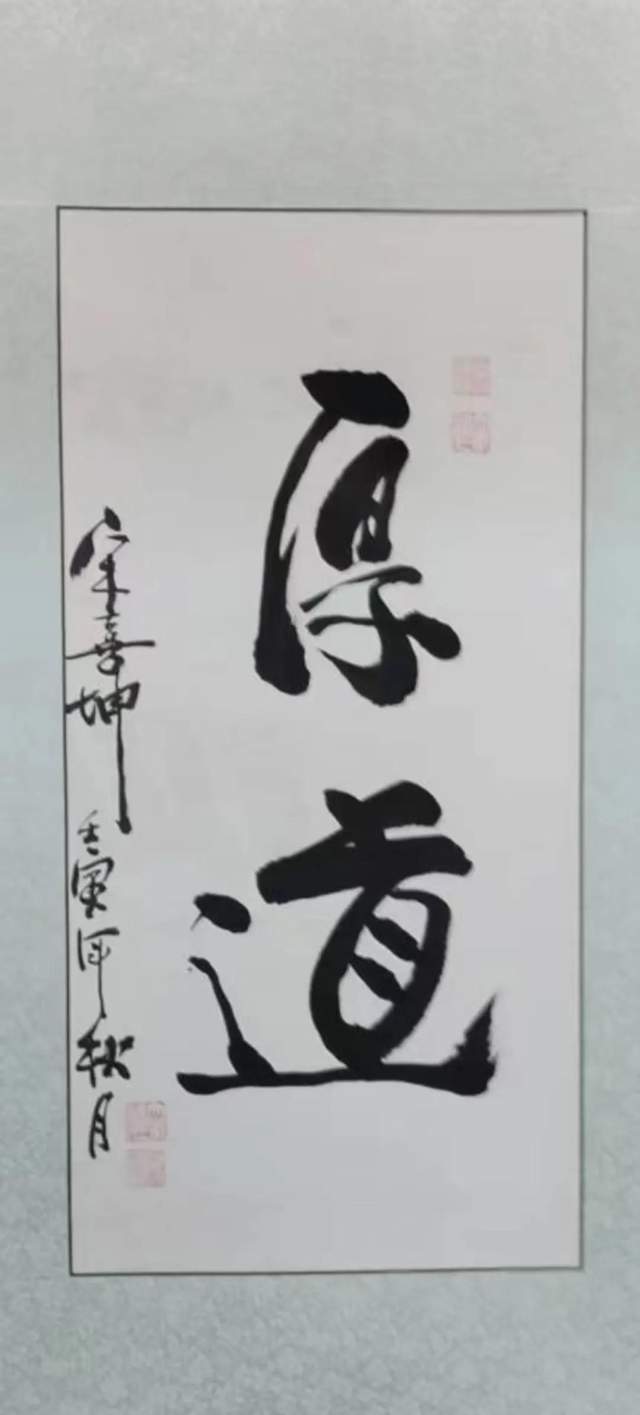 厚道
宋喜坤
壬寅年秋月